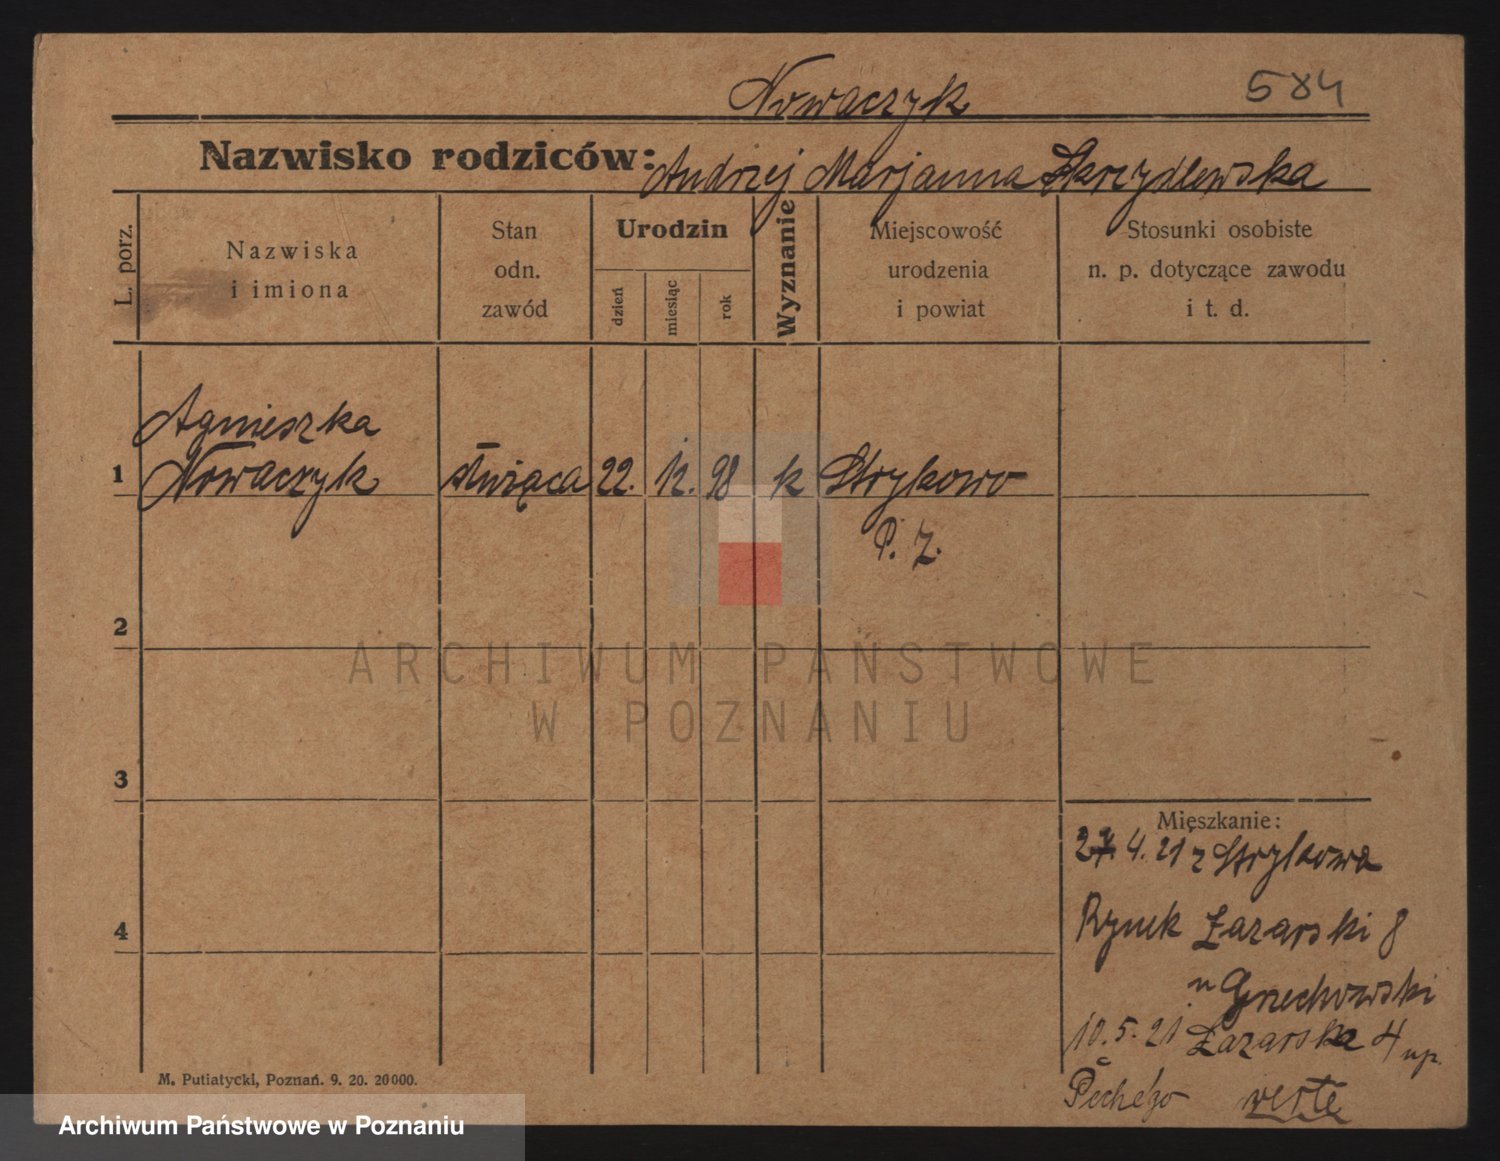 Nowaczyk 584
Nazwisko rodziców: Andrzej Marjanna Skrzydlewska
L. porz.
Nazwiska
i imiona
Stan
odn.
zawód
Urodzin
dzień
miesiąc
rok
Wyznanie
Miejscowość
urodzenia
i powiat
Stosunki osobiste
n. p. dotyczące zawodu
i t. d.
Agnieszka
1 Nowaczyk służąca 22. 12. 98 k Strykowo
P. Z.
2
ARCHIWUM PAŃSTWOWE
W POZNANIU
3
Mięszkanie:
27. 4. 21 z Strykowa
4
Rynek Łazarski 8
u Grzechowski
10. 5. 21 Łazarska 4 u p.
verte
M. Putiatycki, Poznań. 9. 20. 20000.
Archiwum Państwowe w Poznaniu